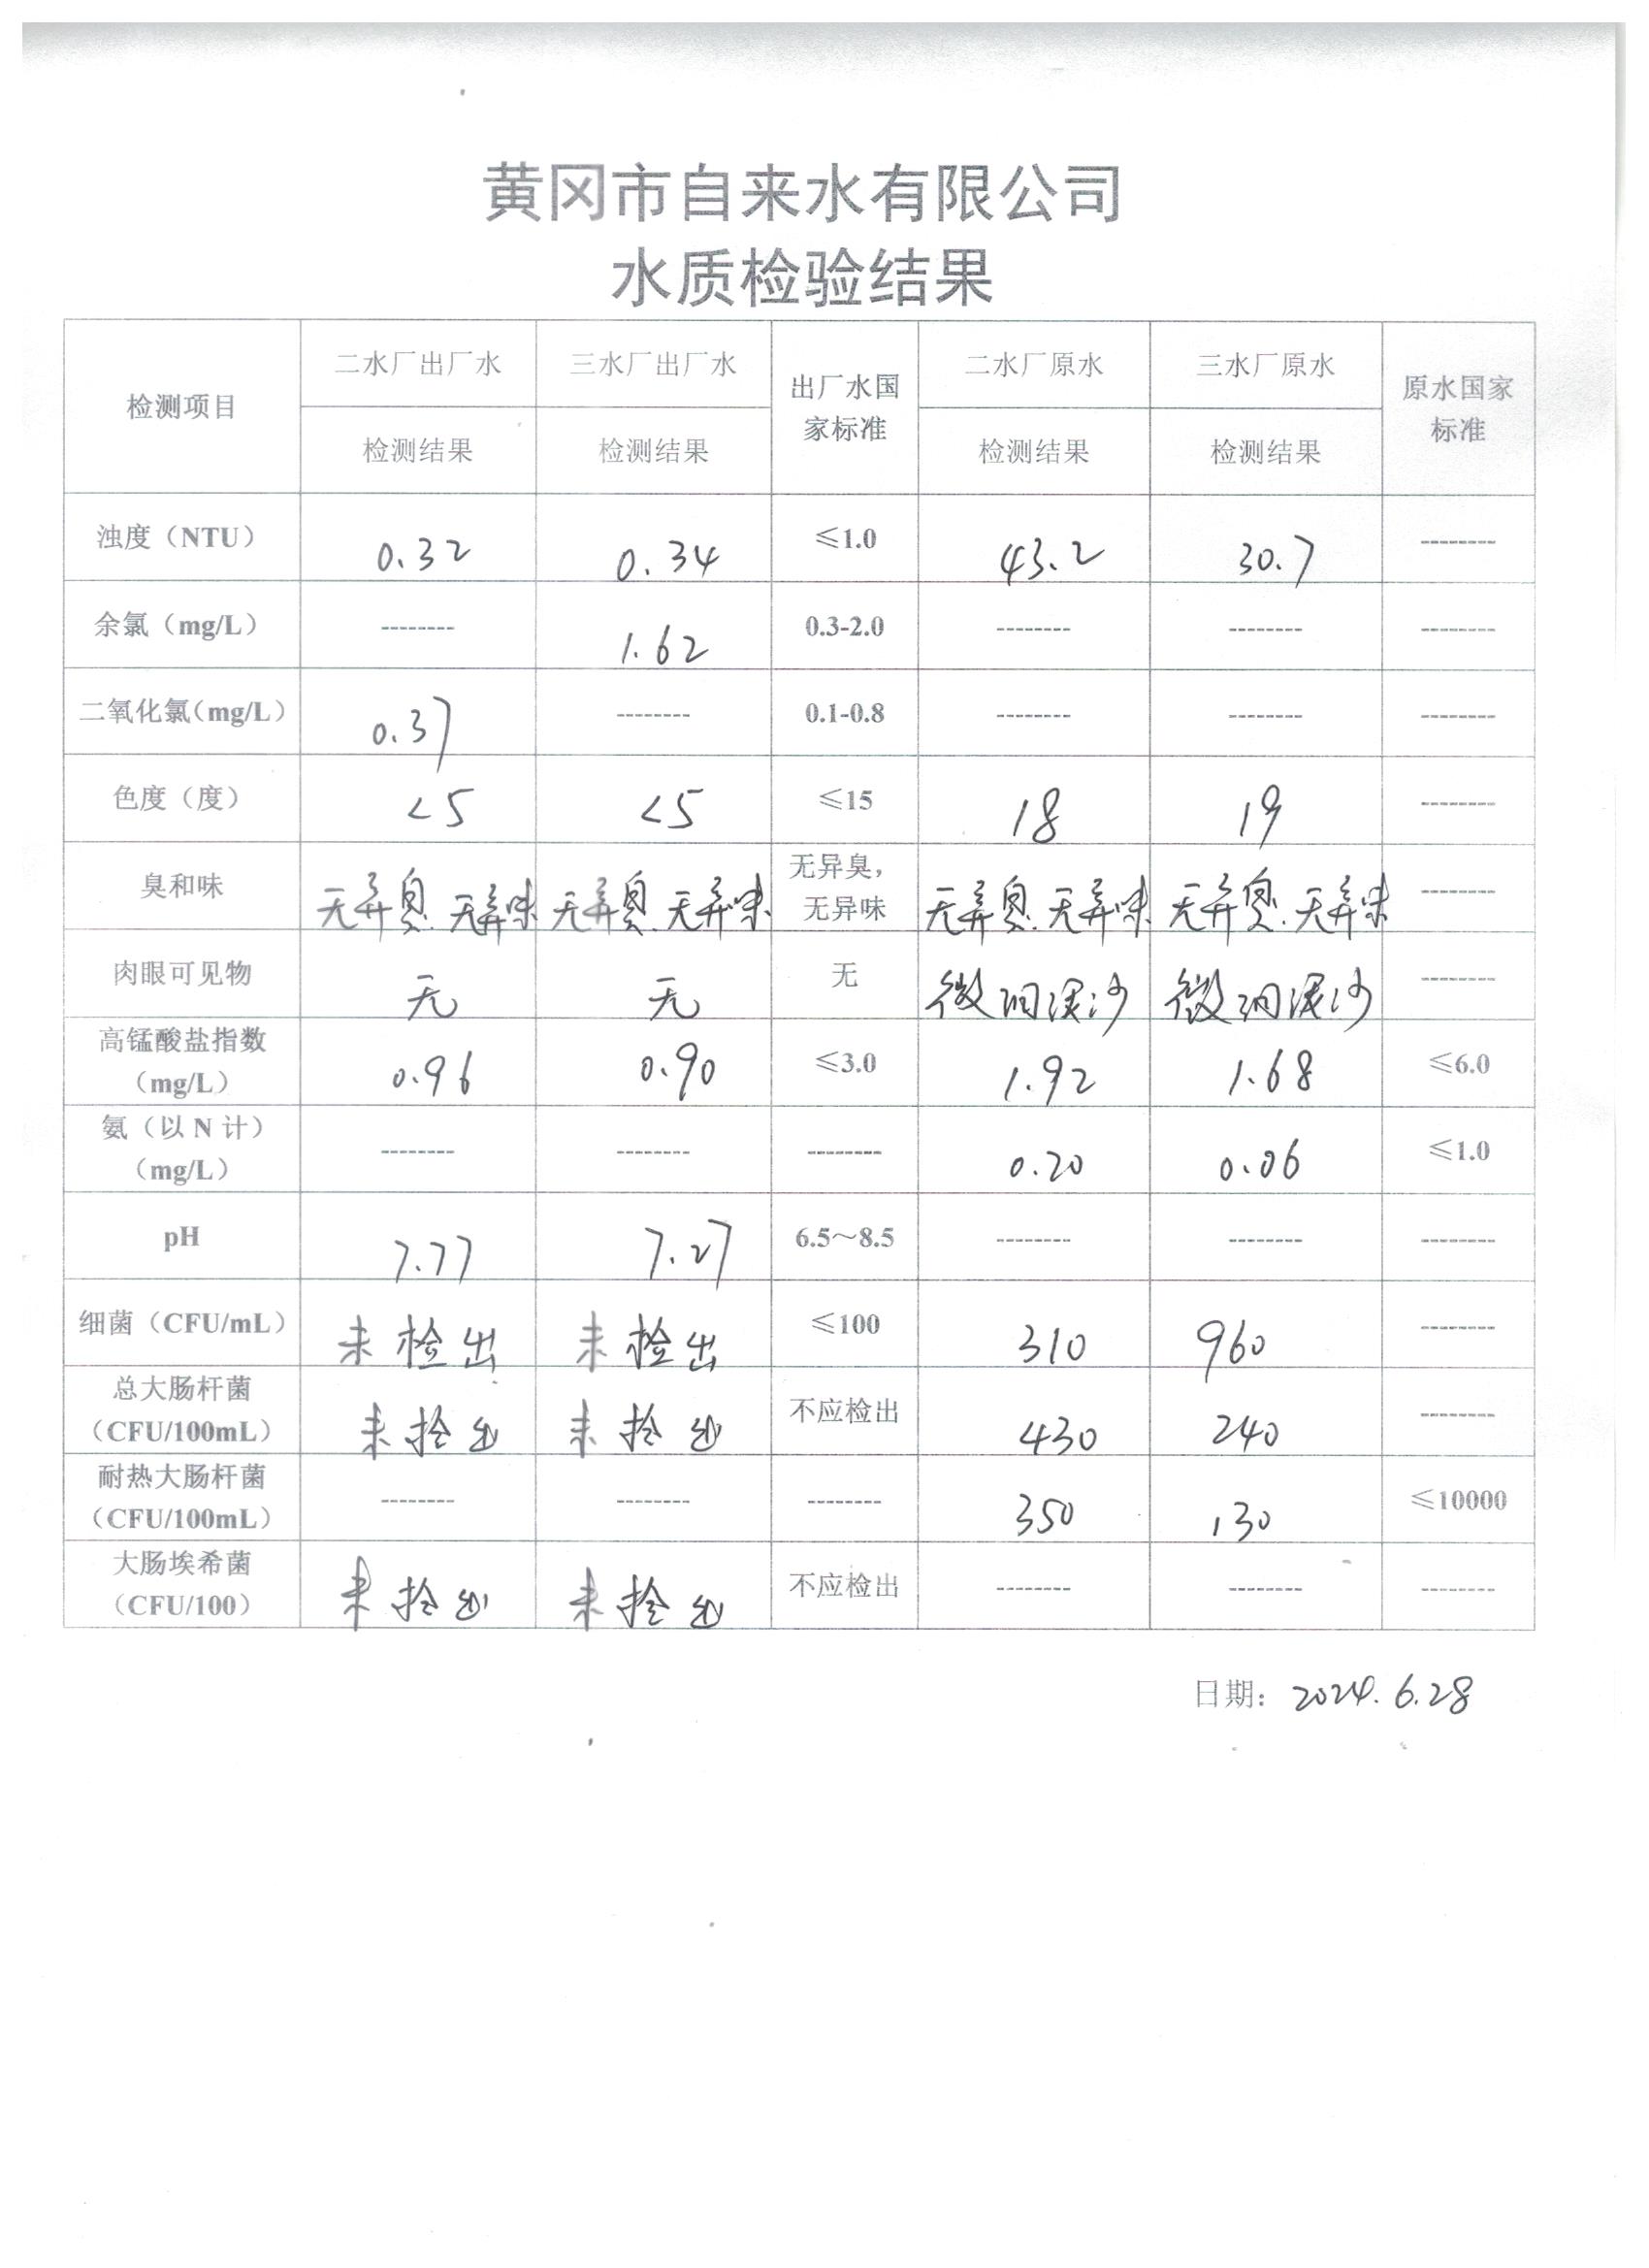 黄冈市自来水有限公司
水质检验结果
检测项目 二水厂出厂水 三水厂出厂水 出厂水国家标准 二水厂原水 三水厂原水 原水国家标准
检测结果 检测结果 检测结果 检测结果
浊度（NTU） 0.32 0.34 ≤1.0 43.2 30.7 --------
余氯（mg/L） -------- 1.62 0.3-2.0 -------- -------- --------
二氧化氯（mg/L） 0.37 -------- 0.1-0.8 -------- -------- --------
色度（度） <5 <5 ≤15 18 19 --------
臭和味 无异臭.无异味 无异臭.无异味 无异臭，无异味 无异臭.无异味 无异臭.无异味 --------
肉眼可见物 无 无 无 微细泥沙 微细泥沙 --------
高锰酸盐指数（mg/L） 0.96 0.90 ≤3.0 1.92 1.68 ≤6.0
氨（以 N 计）（mg/L） -------- -------- -------- 0.20 0.06 ≤1.0
pH 7.77 7.27 6.5～8.5 -------- -------- --------
细菌（CFU/mL） 未检出 未检出 ≤100 310 960 --------
总大肠杆菌（CFU/100mL） 未检出 未检出 不应检出 430 240 --------
耐热大肠杆菌（CFU/100mL） -------- -------- -------- 350 130 ≤10000
大肠埃希菌（CFU/100） 未检出 未检出 不应检出 -------- -------- --------
日期：2024.6.28